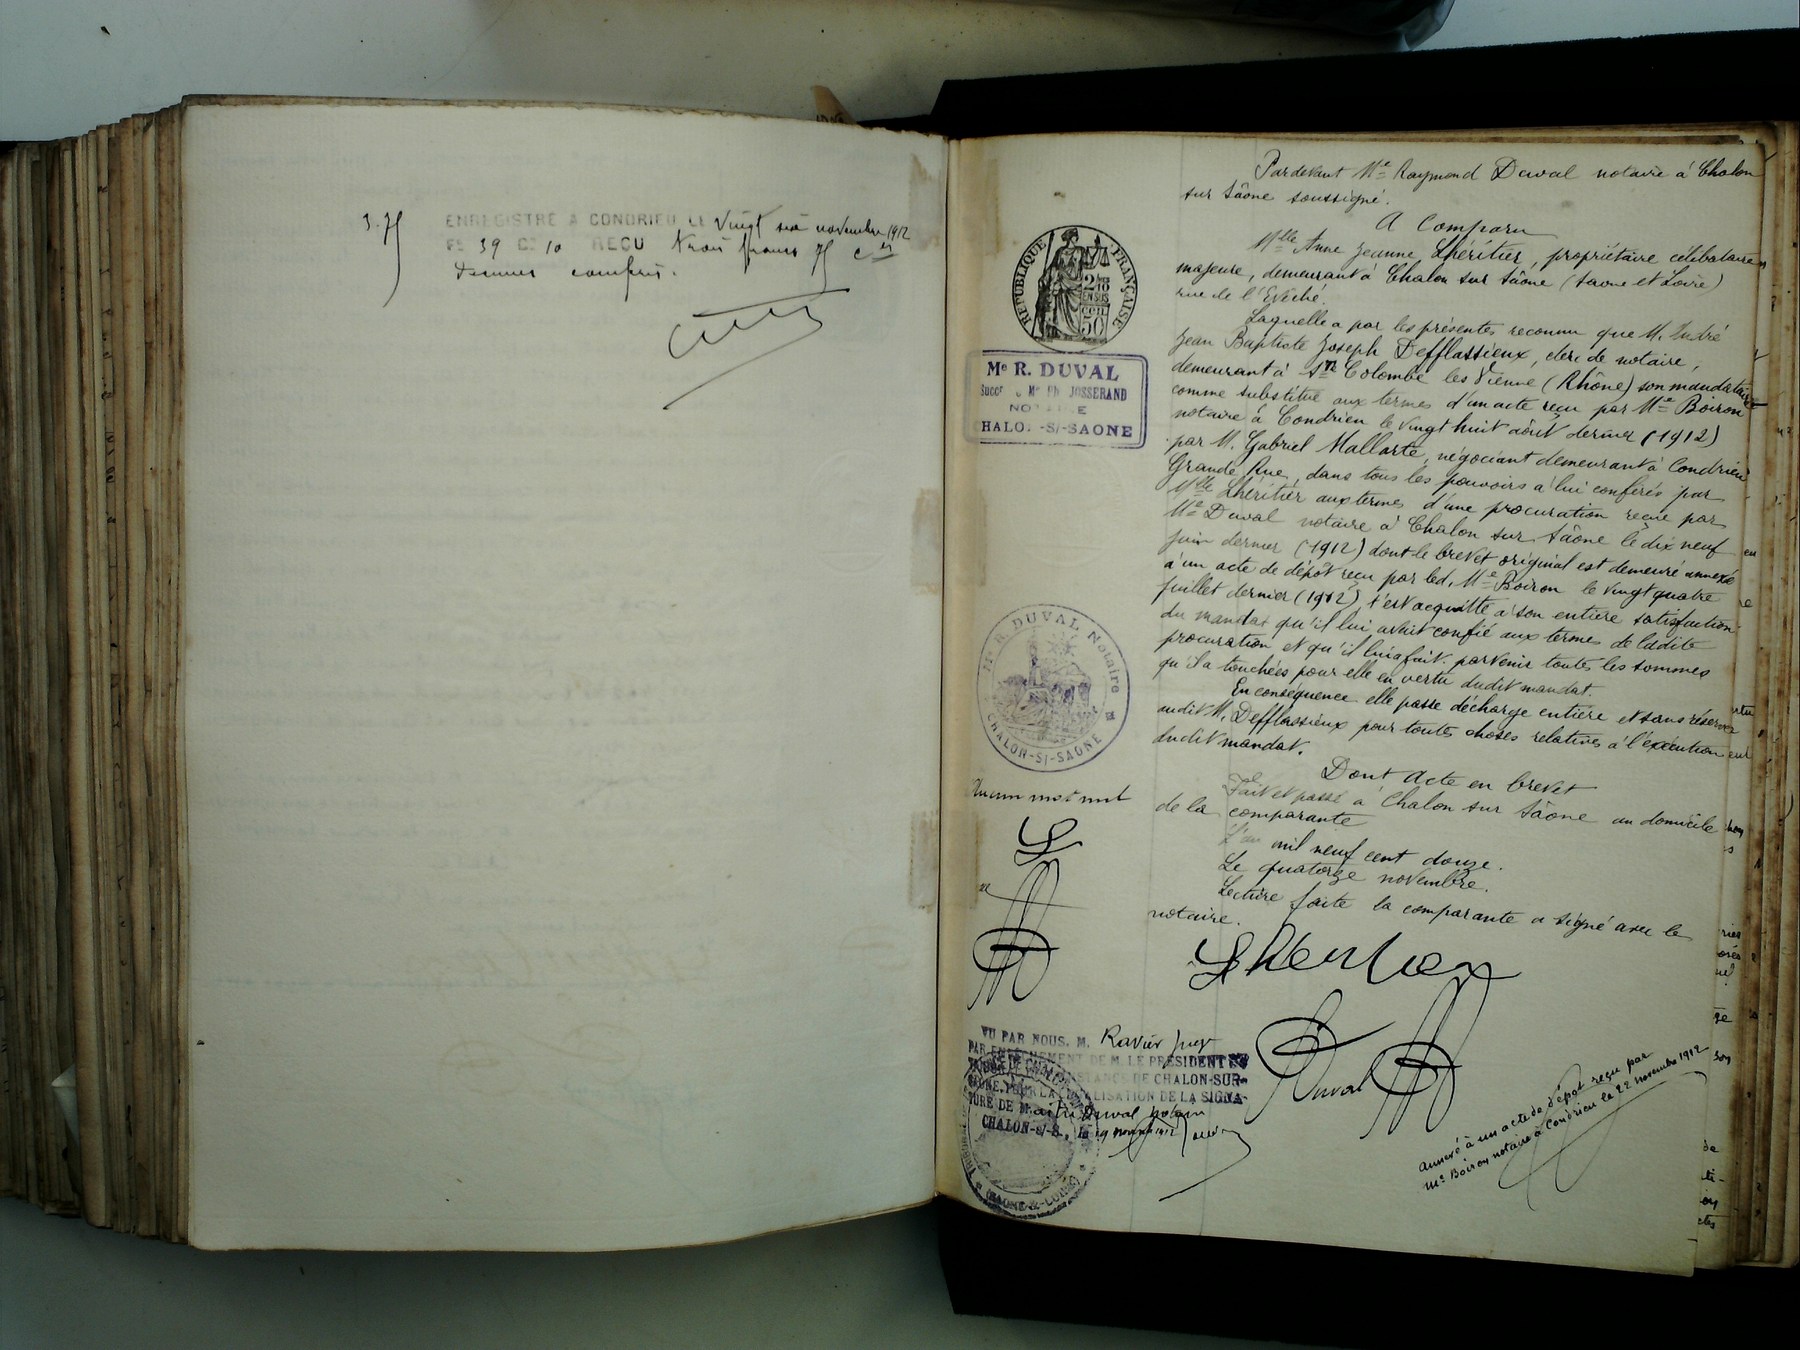 3.75
ENREGISTRÉ A CONDRIEU LE Vingt six novembre 1912
F° 39 C° 10 REÇU trois francs 75 c es
Décimes compris.
Par devant Me Raymond Duval notaire à Chalon
sur Saône soussigné.
A Comparu
Mlle Anne Jeanne Lhéritier, propriétaire célibataire
majeure, demeurant à Chalon sur Saône (Saône et Loire)
rue de l'Evêché.
Laquelle a par les présentes reconnu que M. André
Jean Baptiste Joseph Defflassieux, clerc de notaire,
demeurant à Ste Colombe les Vienne (Rhône) son mandataire
comme substitué aux termes d'un acte reçu par Me Boiron
notaire à Condrieu le vingt huit août dernier (1912)
par M. Gabriel Mallarte, négociant demeurant à Condrieu
Grande Rue, dans tous les pouvoirs à lui conférés par
Mlle Lhéritier aux termes d'une procuration reçue par
Me Duval notaire à Chalon sur Saône le dix neuf
juin dernier (1912) dont le brevet original est demeuré annexé
à un acte de dépôt reçu par led. Me Boiron le vingt quatre
juillet dernier (1912), s'est acquitté à son entière satisfaction
du mandat qu'il lui avait confié aux termes de ladite
procuration et qu'il lui a fait parvenir toutes les sommes
qu'il a touchées pour elle en vertu dudit mandat.
En conséquence elle passe décharge entière et sans réserves
audit M. Defflassieux pour toutes choses relatives à l'exécution
dudit mandat.
Dont Acte en brevet
Fait et passé à Chalon sur Saône au domicile
de la comparante
L'an mil neuf cent douze.
Le quatorze novembre.
Lecture faite la comparante a signé avec le
notaire.
Lheritier
Duval
RÉPUBLIQUE FRANÇAISE
2/10
EN SUS
50
Me R. DUVAL
Succr de Me Ph. JOSSERAND
NOTAIRE
CHALON-S/-SAONE
Me R. DUVAL Notaire
CHALON-S/-SAONE
Aucun mot nul
L
VU PAR NOUS, M. Ravier juge
PAR EMPÊCHEMENT DE M. LE PRÉSIDENT DU
TRIBUNAL DE 1re INSTANCE DE CHALON-SUR-
SAONE, POUR LA LÉGALISATION DE LA SIGNA-
TURE DE Maître Duval notaire
CHALON-s/-S., le 19 novembre 1912
(SAONE-&-LOIRE)
Annexé à un acte de dépôt reçu par
Me Boiron notaire à Condrieu le 22 novembre 1912